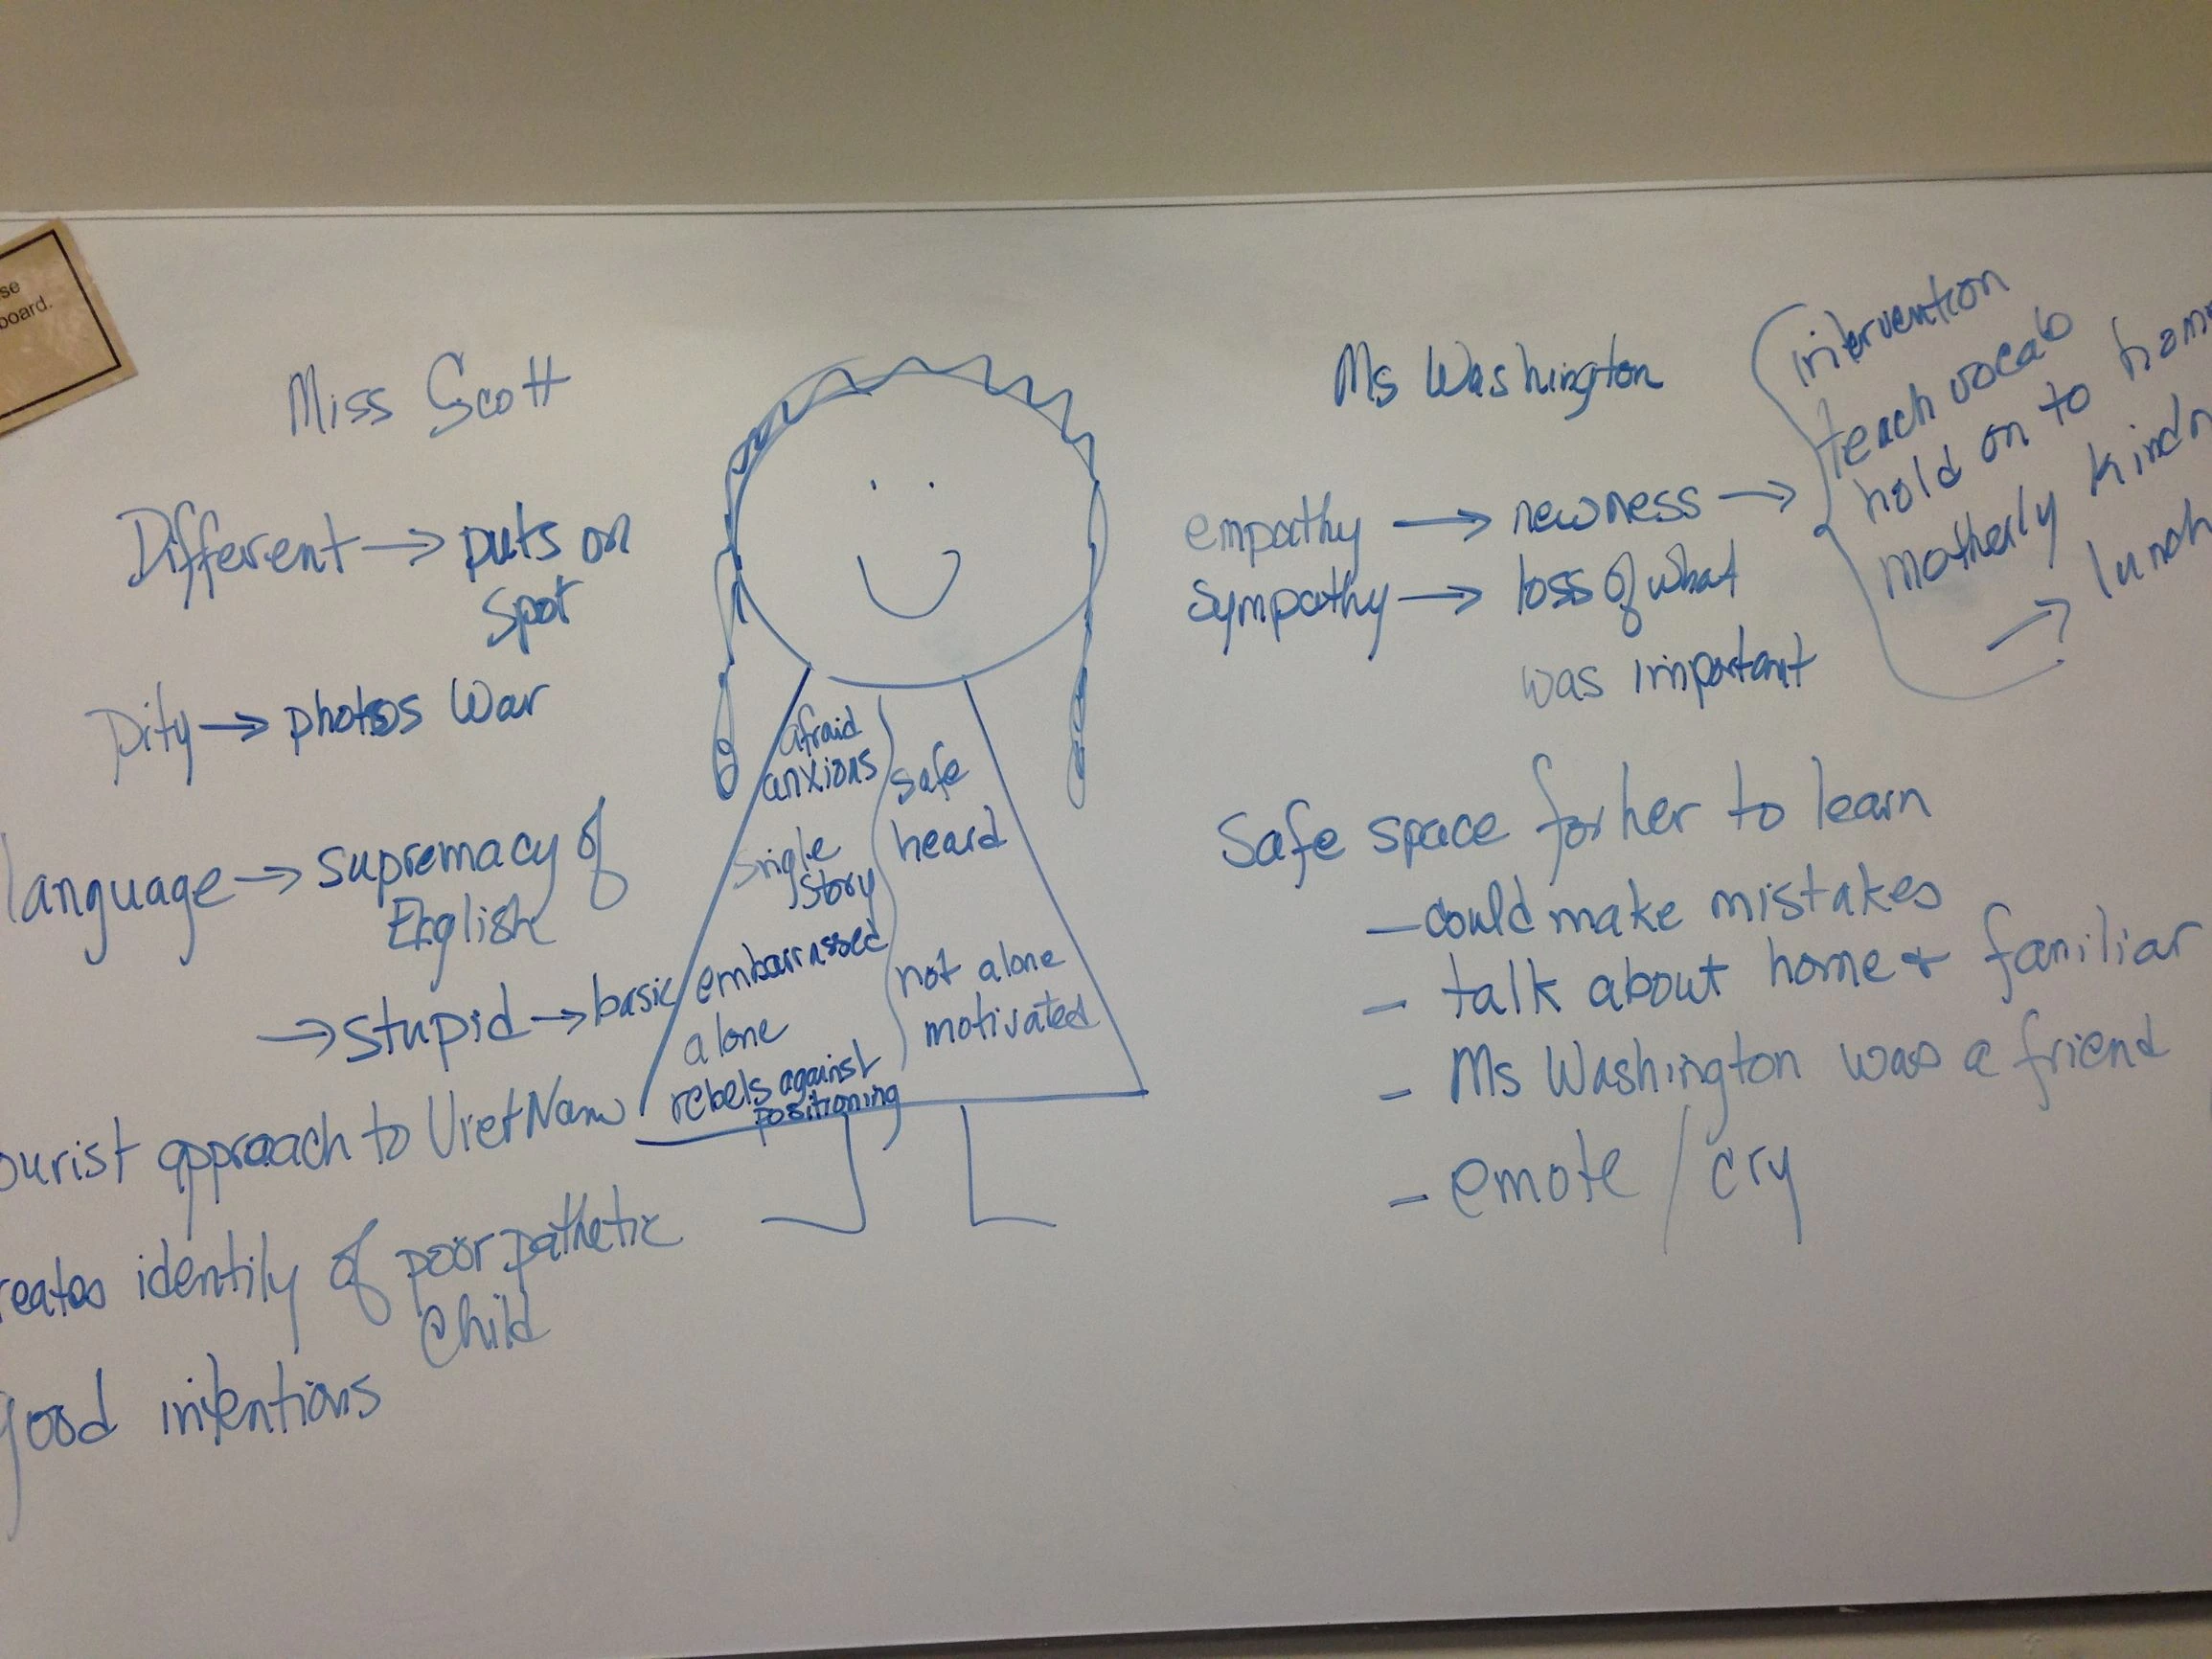 se
board.
Miss Scott
Different → puts on
spot
Pity → photos War
language → supremacy of
English
→ stupid → basic
ourist approach to VietNam
reates identity of poor pathetic
child
good intentions
afraid
anxious
single
story
embarrassed
alone
rebels against
positioning
safe
heard
not alone
motivated
Ms Washington
empathy → newness →
sympathy → loss of what
was important
intervention
teach vocab
hold on to hom
motherly kindn
→ lunch
Safe space for her to learn
- could make mistakes
- talk about home + familiar
- Ms Washington was a friend
- emote / cry